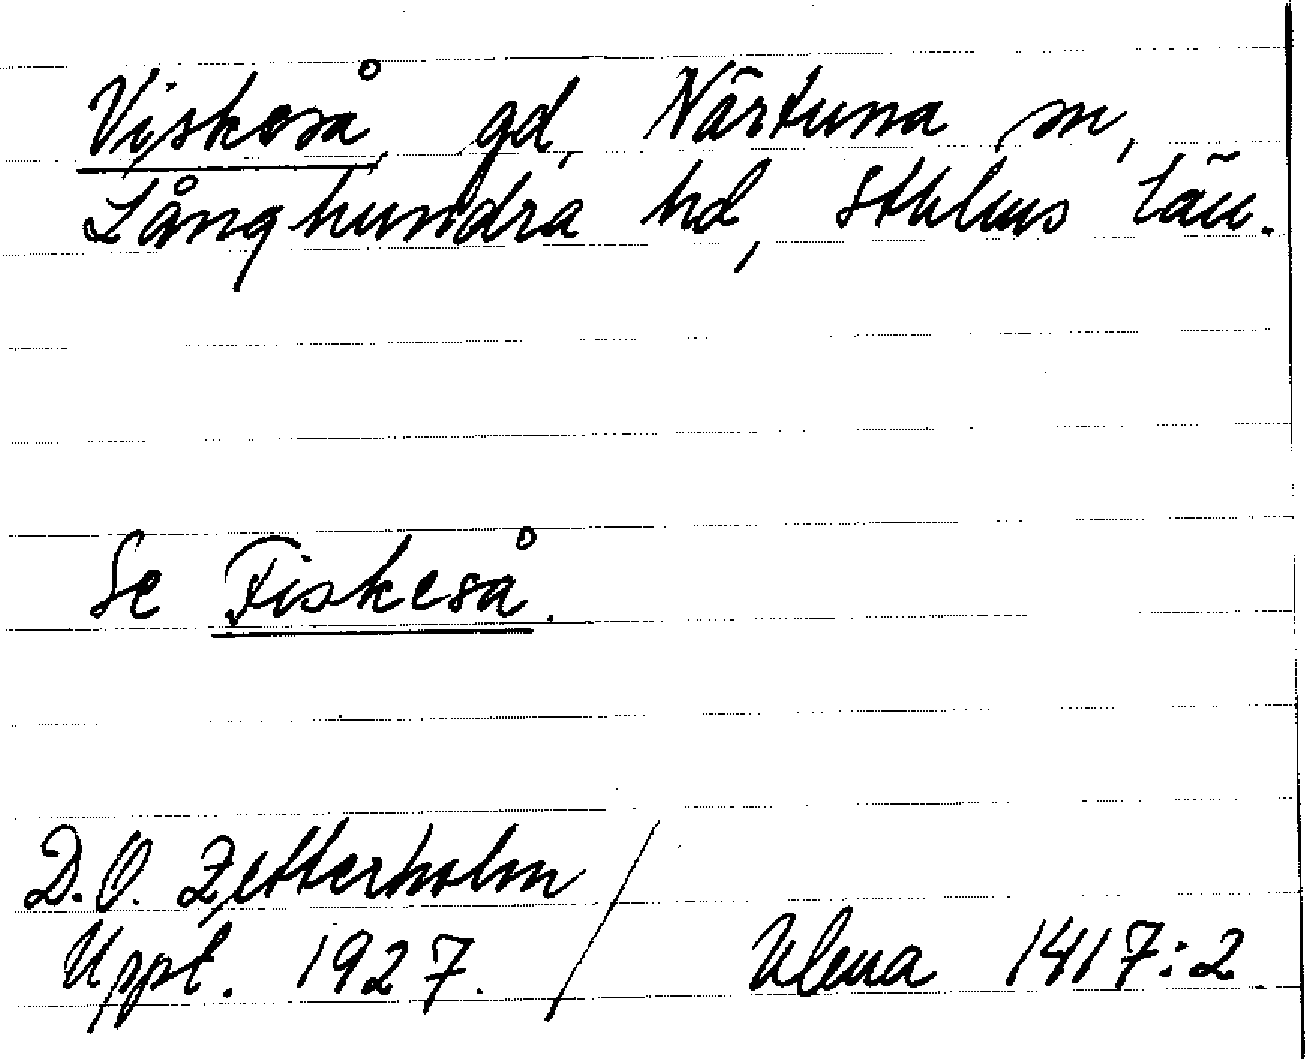 Viskeså, gd, Närtuna sn,
Långhundra hd, Sthlms län.
Se Fiskeså.
D.O. Zetterholm
Uppl. 1927. / Ulma 1417:2